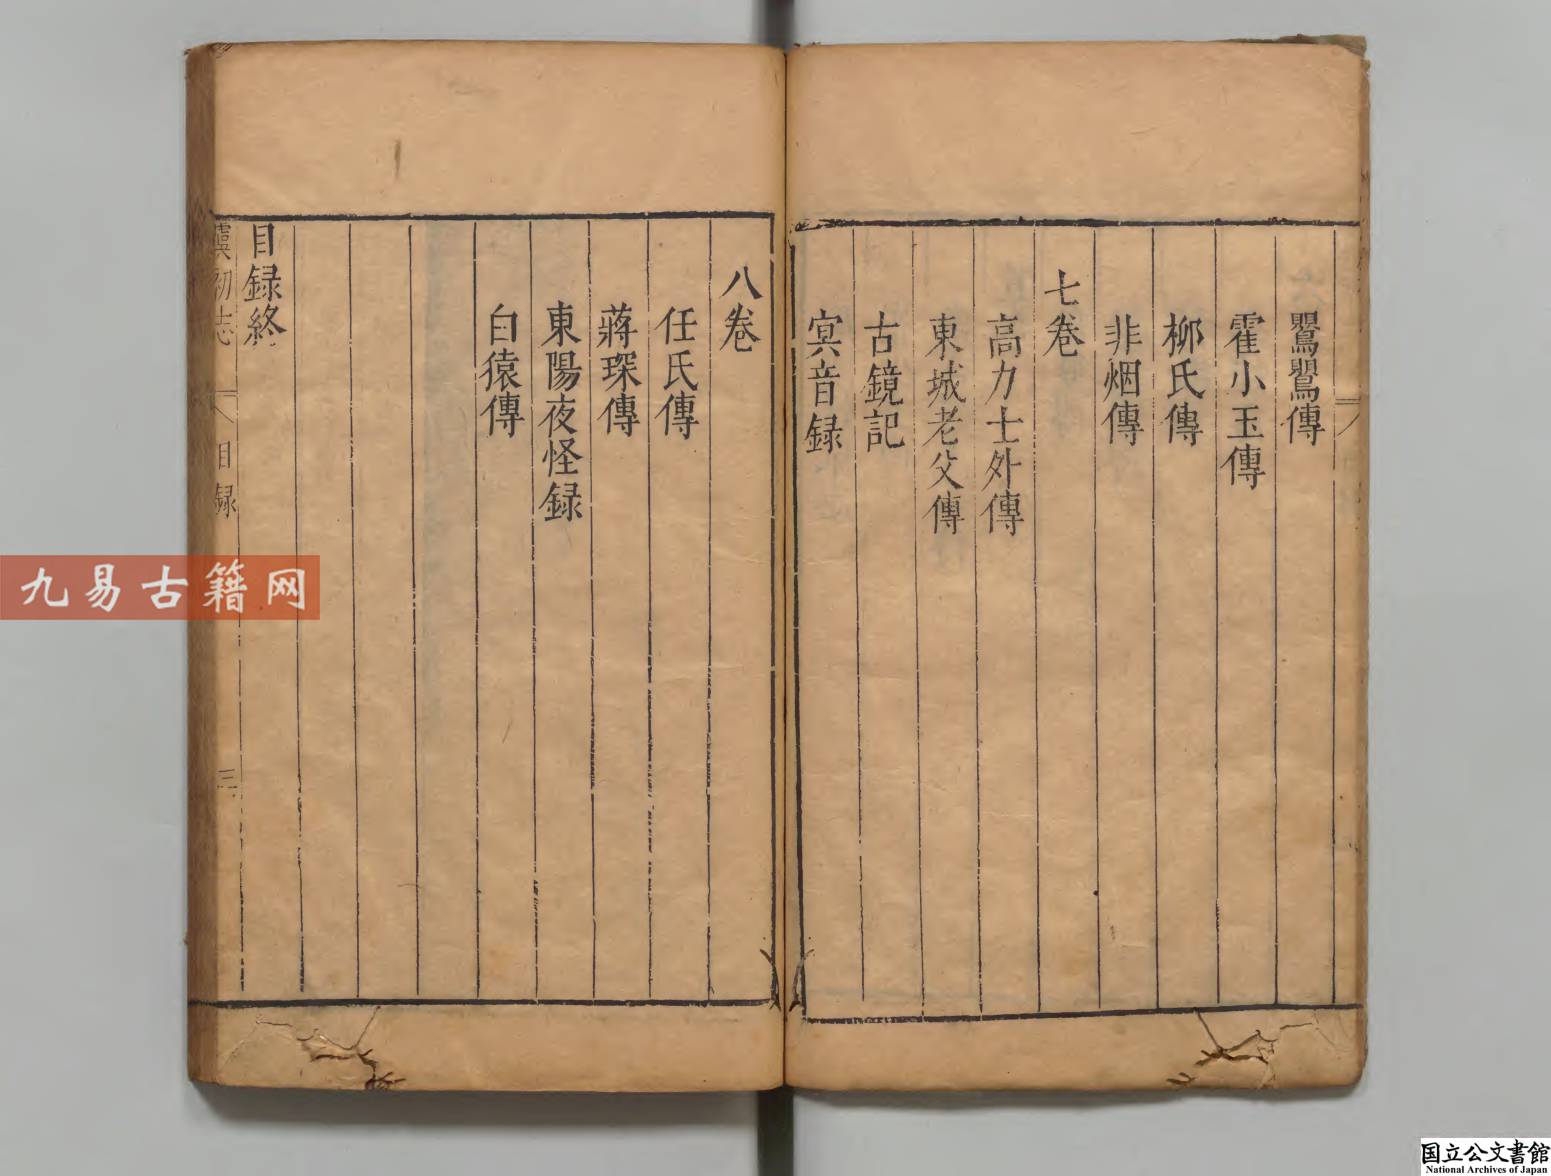 鸎鸎傳
霍小玉傳
柳氏傳
非烟傳
七卷
高力士外傳
東城老父傳
古鏡記
冥音録
八卷
任氏傳
蔣琛傳
東陽夜怪録
白猿傳
目録終
虞初志
目録
三
九易古籍网
国立公文書館
National Archives of Japan